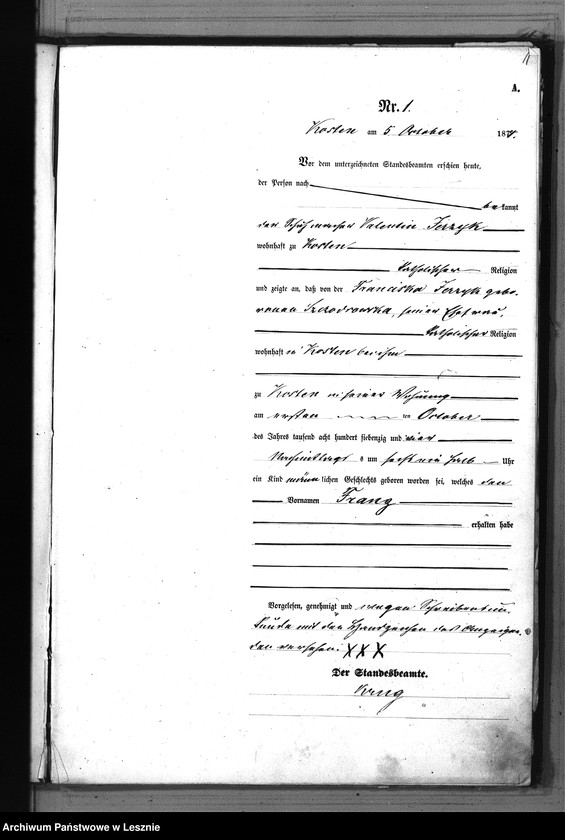 A.
Nr. 1.
Kosten am 5 October 1874.
Vor dem unterzeichneten Standesbeamten erschien heute,
der Person nach
bekannt
der Schuhmacher Valentin Jerzyk
wohnhaft zu Kosten
katholischer Religion
und zeigte an, daß von der Franciska Jerzyk gebo-
renen Szczodrowska, seiner Ehefrau,
katholischer Religion
wohnhaft in Kosten bei ihm
zu Kosten in seiner Wohnung
am ersten ten October
des Jahres tausend acht hundert siebenzig und vier
Nachmittags um sechs ein halb Uhr
ein Kind männlichen Geschlechts geboren worden sei, welches den
Vornamen Franz
erhalten habe
Vorgelesen, genehmigt und wegen Schreibensun-
kunde mit den Handzeichen des Anzeigen-
den versehen. XXX
Der Standesbeamte.
Archiwum Państwowe w Lesznie